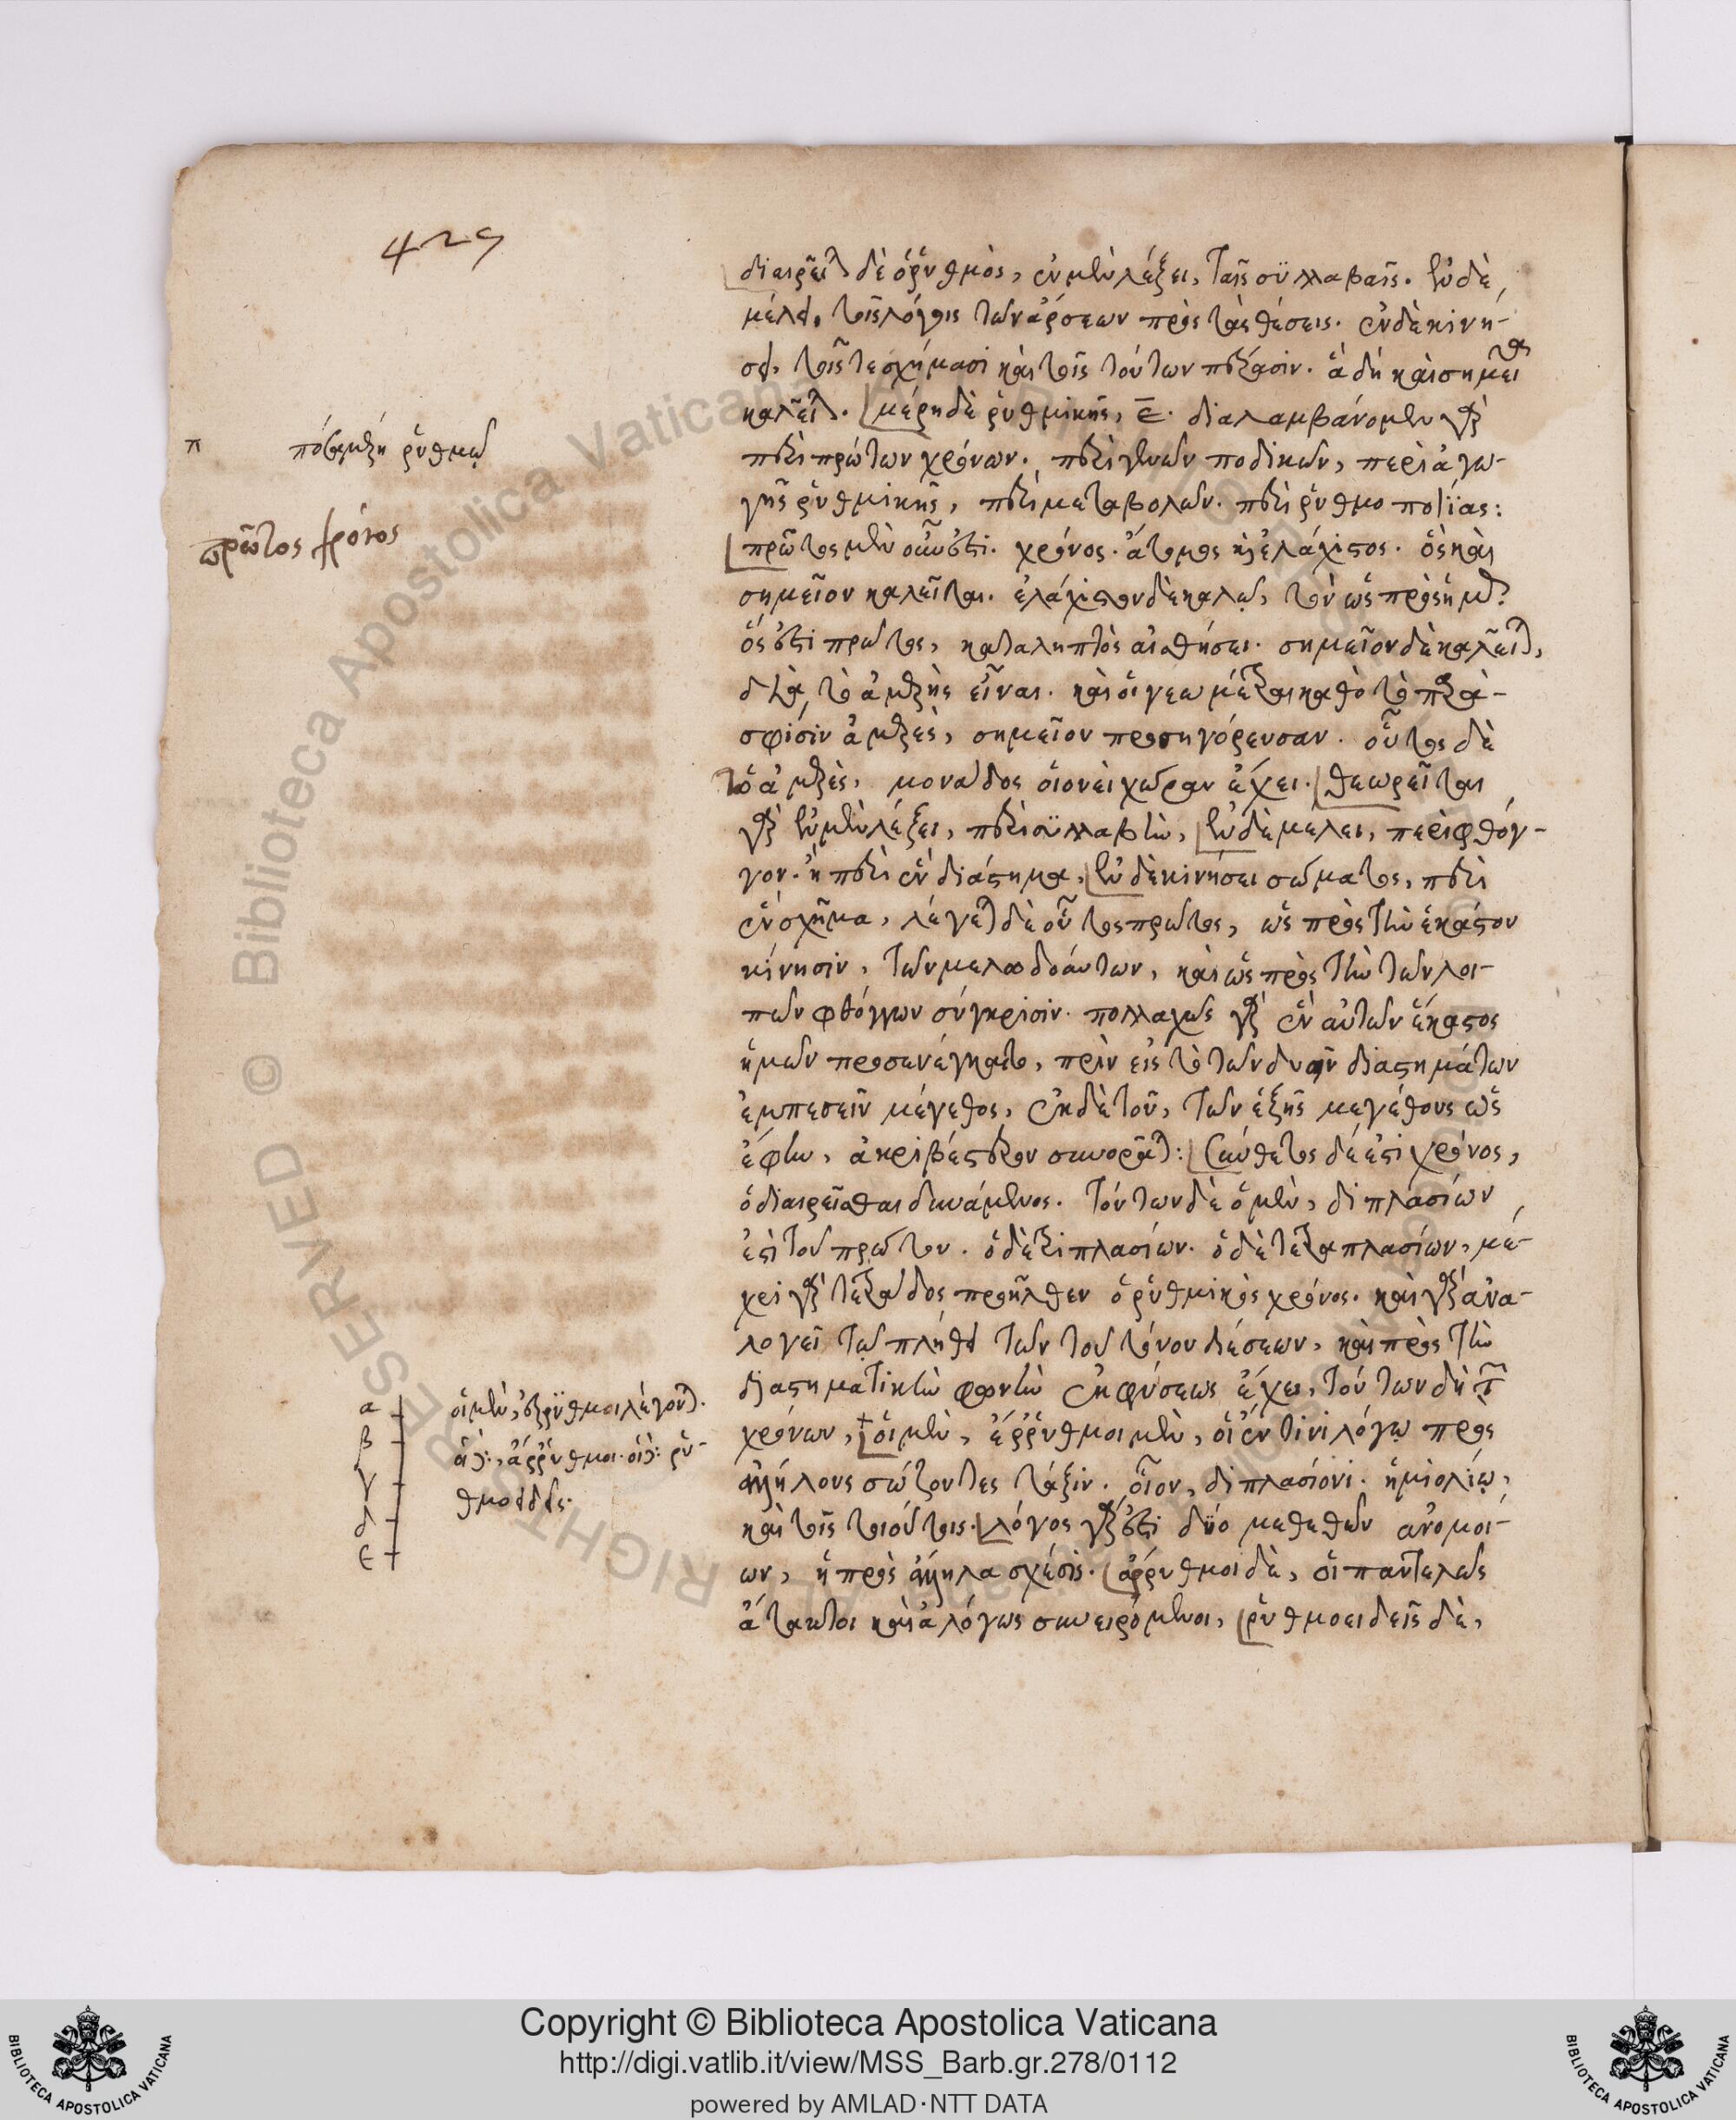 διαιρεῖται δὲ ὁ ῥυθμὸς, ἐν μὲν λέξει, ταῖς συλλαβαῖς. ἐν δὲ
μέλει, τοῖς λόγοις τῶν ἄρσεων πρὸς τὰς θέσεις. ἐν δὲ κινή-
σει, τοῖς τε σχήμασι καὶ τοῖς τούτων πέρασιν. ἃ δὴ καὶ σημεῖα
καλεῖται. μέρη δὲ ῥυθμικῆς, ε̄. διαλαμβάνομεν γὰρ
περὶ πρώτων χρόνων. περὶ γενῶν ποδικῶν, περὶ ἀγω-
γῆς ῥυθμικῆς, περὶ μεταβολῶν. περὶ ῥυθμοποιΐας:
πρῶτος μὲν οὖν ἐστι. χρόνος. ἄτομος καὶ ἐλάχιστος. ὃς καὶ
σημεῖον καλεῖται. ἐλάχιστον δὲ καλῶ, τὸν ὡς πρὸς ἡμᾶς
ὅς ἐστι πρῶτος, καταληπτὸς αἰσθήσει. σημεῖον δὲ καλεῖται,
διὰ τὸ ἀμερὴς εἶναι. καὶ οἱ γεωμέτραι καθὸ τὸ παρὰ-
σφίσιν ἀμερὲς, σημεῖον προσηγόρευσαν. οὗτος δὲ
ὁ ἀμερὲς, μονάδος οἱονεὶ χώραν ἔχει. θεωρεῖται
γὰρ ἐν μὲν λέξει, περὶ συλλαβὴν, ἐν δὲ μέλει, περὶ φθόγ-
γον. ἢ περὶ ἓν διάστημα, ἐν δὲ κινήσει σώματος, περὶ
ἓν σχῆμα, λέγεται δὲ οὗτος πρῶτος, ὡς πρὸς τὴν ἑκάστου
κίνησιν, τῶν μελῳδούντων, καὶ ὡς πρὸς τὴν τῶν λοι-
πῶν φθόγγων σύγκρισιν. πολλαχῶς γὰρ ἓν αὐτῶν ἕκαστος
ἡμῶν προσενέγκαιτο, πρὶν εἰς τὸ τῶν δυοῖν διαστημάτων
ἐμπεσεῖν μέγεθος, ἐκ δὲ τοῦ, τῶν ἑξῆς μεγέθους ὡς
ἔφην, ἀκριβέστερον συνορᾶται: σύνθετος δέ ἐστι χρόνος,
ὁ διαιρεῖσθαι δυνάμενος. τούτων δὲ ὁ μὲν, διπλασίων
ἐστὶ τοῦ πρώτου. ὁ δὲ τριπλασίων. ὁ δὲ τετραπλασίων, μέ-
χρι γὰρ τετράδος προῆλθεν ὁ ῥυθμικὸς χρόνος. καὶ γὰρ ἀνα-
λογεῖ τῷ πλήθει τῶν τοῦ τόνου διέσεων, καὶ πρὸς τὴν
διαστηματικὴν φωνὴν ἐκ φύσεως ἔχει, τούτων δὴ τῶν
χρόνων, οἱ μὲν, ἔρρυθμοι μὲν, οἱ ἔν τινι λόγῳ πρὸς
ἀλλήλους σώζοντες τάξιν. οἷον, διπλασίονι. ἡμιολίῳ,
καὶ τοῖς τοιούτοις. λόγος γάρ ἐστι δύο μεγεθῶν ἀνομοί-
ων, ἡ πρὸς ἄλληλα σχέσις. ἄρρυθμοι δὲ, οἱ παντελῶς
ἄτακτοι καὶ ἀλόγως συνειρόμενοι, ῥυθμοειδεῖς δὲ,
π
πόσα μέρη ῥυθμῶν
πρῶτος χρόνος
α
β
γ
δ
ε
οἱ μὲν, ἔρρυθμοι λέγονται.
οἱ δὲ, ἄρρυθμοι. οἱ δὲ ῥυ-
θμοειδεῖς.
Copyright © Biblioteca Apostolica Vaticana
http://digi.vatlib.it/view/MSS_Barb.gr.278/0112
powered by AMLAD·NTT DATA
BIBLIOTECA APOSTOLICA VATICANA
BIBLIOTECA APOSTOLICA VATICANA